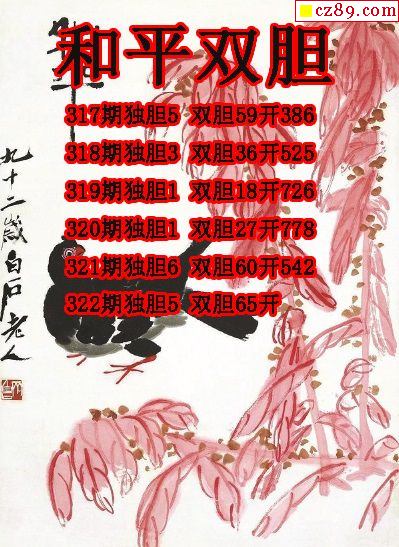 cz89.com
和平双胆
317期独胆5 双胆59开386
318期独胆3 双胆36开525
319期独胆1 双胆18开726
320期独胆1 双胆27开778
321期独胆6 双胆60开542
322期独胆5 双胆65开
九十二岁白石老人